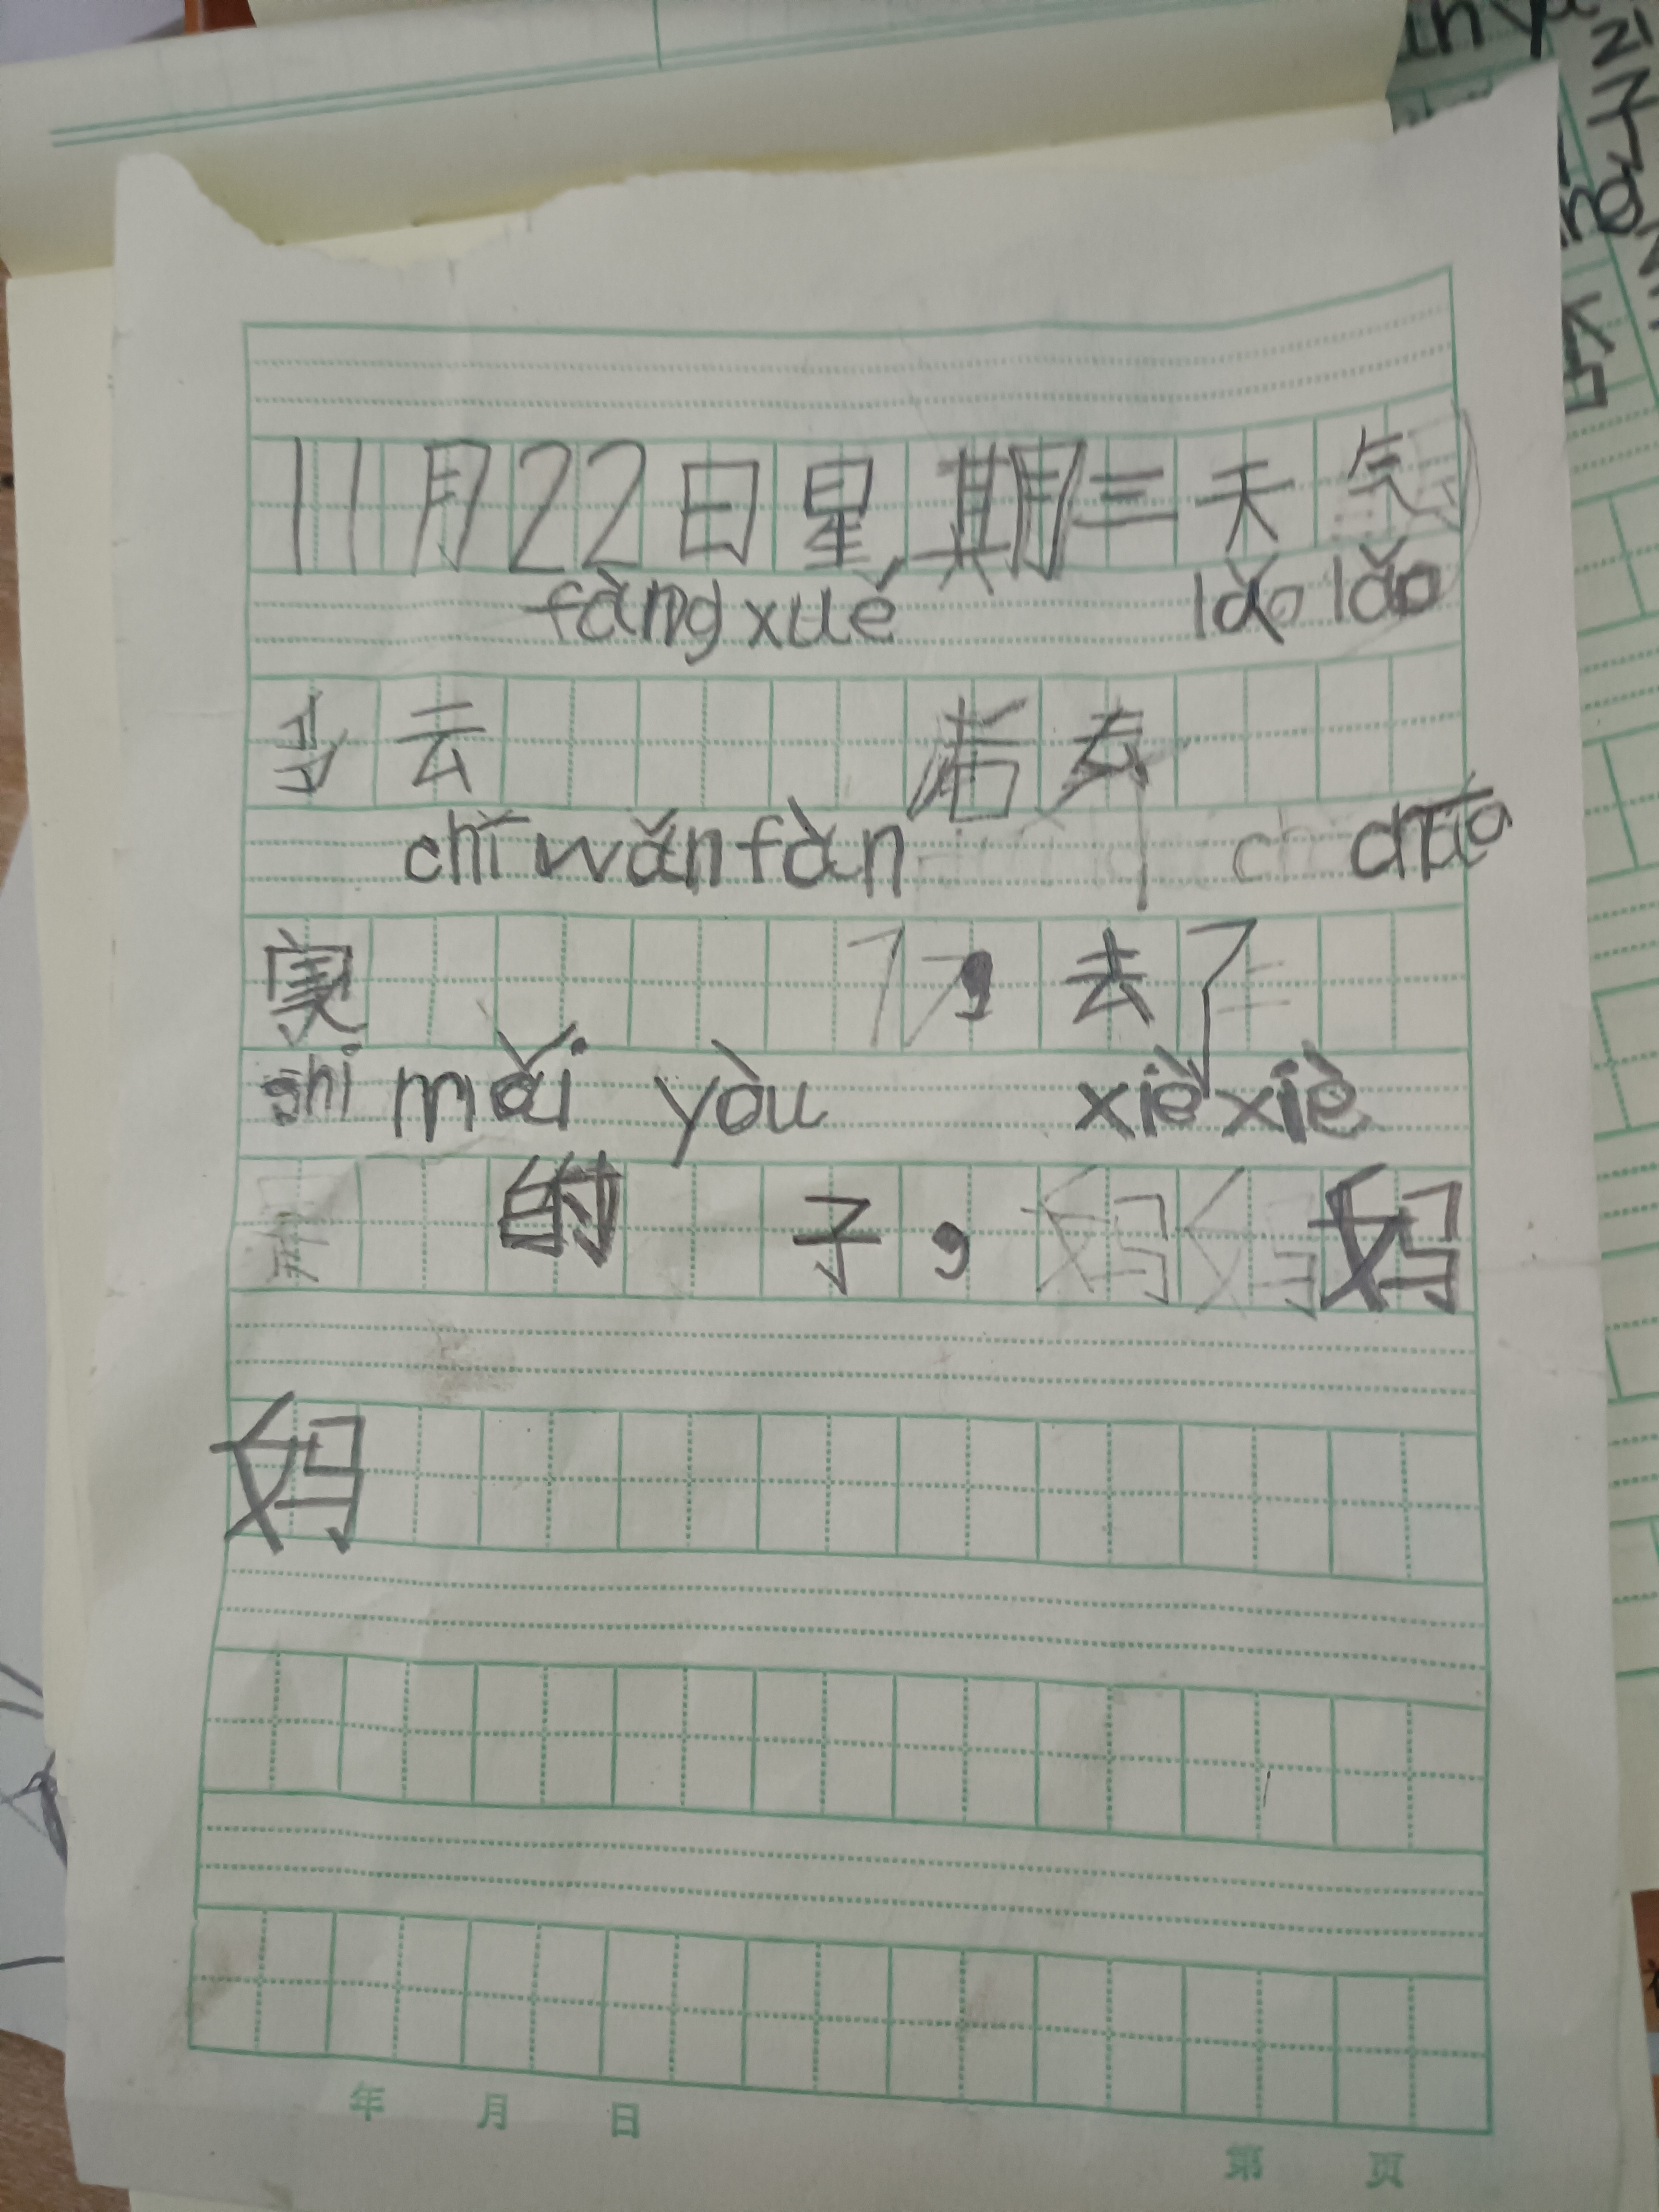 11月22日星期三天气
fàng xué lǎo lǎo
多云 后去
chī wǎn fàn chāo
家 了,去了
shì mǎi yòu xiè xiè
的 子,妈
妈
年 月 日
第 页